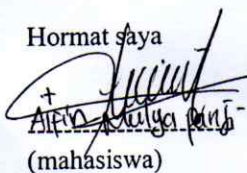 Hormat saya
Alfin Mulya Panji
(mahasiswa)